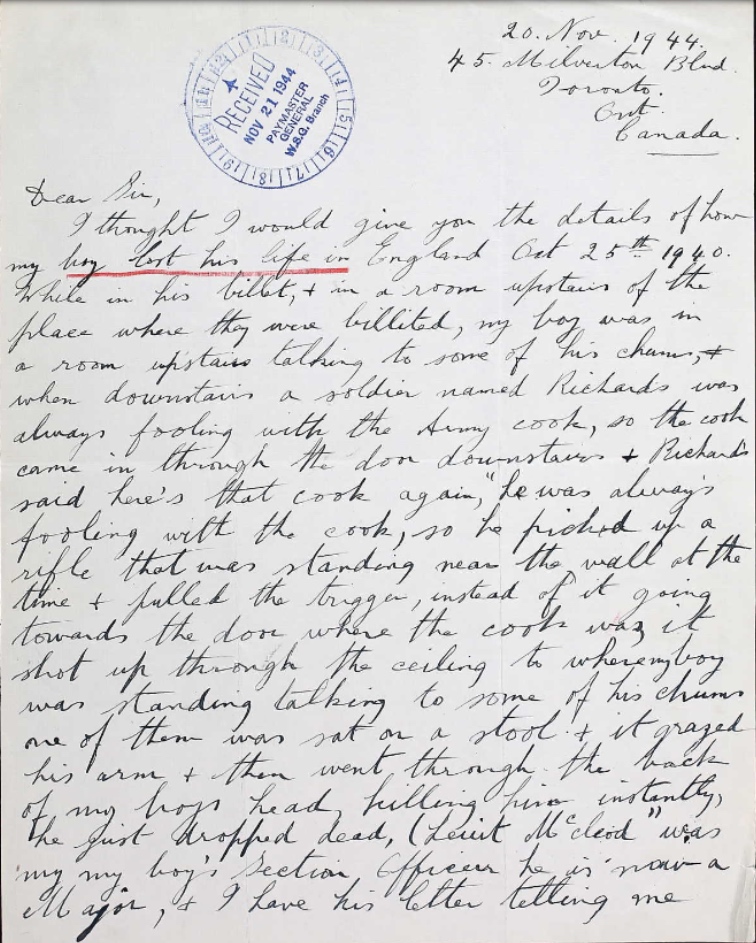 20. Nov. 1944.
45. Milverton Blvd.
Toronto.
Ont.
Canada.
RECEIVED
NOV 21 1944
PAYMASTER
GENERAL
W.S.G. Branch
Dear Sir,
I thought I would give you the details of how
my boy lost his life in England Oct 25th 1940.
While in his billet, + in a room upstairs of the
place where they were billited, my boy was in
a room upstairs talking to some of his chums, +
when downstairs a soldier named Richards was
always fooling with the Army cook, so the cook
came in through the door downstairs + Richards
said here's that cook again," he was always
fooling with the cook, so he picked up a
rifle that was standing near the wall at the
time + pulled the trigger, instead of it going
towards the door where the cook was, it
shot up through the ceiling to where my boy
was standing talking to some of his chums
one of them was sat on a stool + it grazed
his arm + then went through the back
of my boys head, killing him instantly,
he just dropped dead, (Leiut McCleod" was
my my boy's Section Officer he is now a
Major, + I have his letter telling me